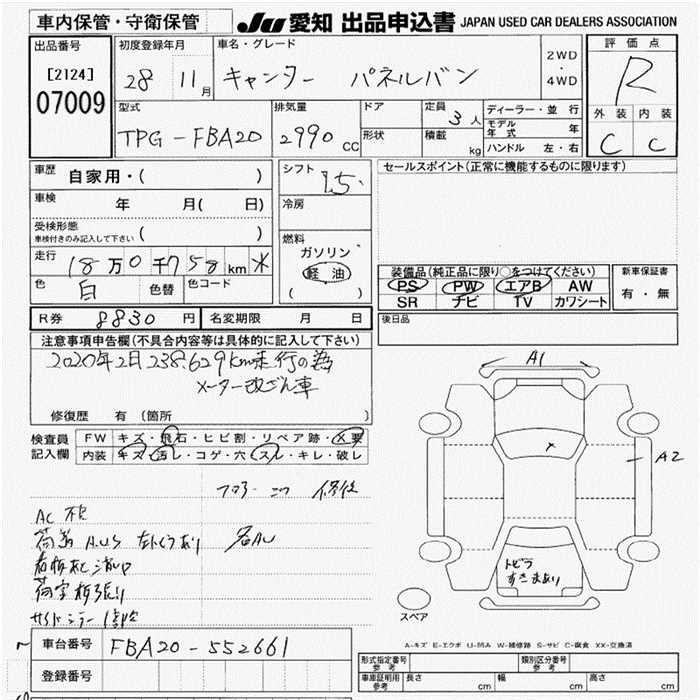 車内保管・守衛保管 JU 愛知 出品申込書 JAPAN USED CAR DEALERS ASSOCIATION
出品番号 初度登録年月 車名・グレード 評価点
[2124] 28 11月 キャンター パネルバン 2WD・4WD R
07009
型式 排気量 ドア 定員 3人 ディーラー・並行 外装 内装
TPG-FBA20 2990cc 形状 積載 kg モデル年式 年 C C
ハンドル 左・右
車歴 自家用・( ) シフト 15. セールスポイント(正常に機能するものに限ります)
車検 年 月( 日) 冷房
受検形態 ( )
車検付きのみ記入して下さい
燃料 ガソリン
走行 18万0千758km 軽油 装備品(純正品に限り○をつけてください) 新車保証書
色 白 色替 色コード ( ) PS PW エアB AW 有・無
SR ナビ TV カワシート
R券 8830円 名変期限 月 日 後日品
注意事項申告欄(不具合内容等は具体的に記入して下さい)
2020年2月 238,629km走行の為
メーター改ざん車
修復歴 有(箇所 )
A1
検査員記入欄 FW キズ・飛石・ヒビ割・リペア跡・X要
内装 キズ・汚レ・コゲ・穴・スレ・キレ・破レ
A2
フロアーコツ 修後
AC不良
トビラ
すきまあり
サイドミラー
スペア
A-キズ E-エクボ U-凹み W-補修跡 S-サビ C-腐食 XX-交換済
車台番号 FBA20-552661
登録番号
型式指定番号 参考 類別区分番号 参考
車庫証明用 参考 長さ cm 幅 cm 高さ cm